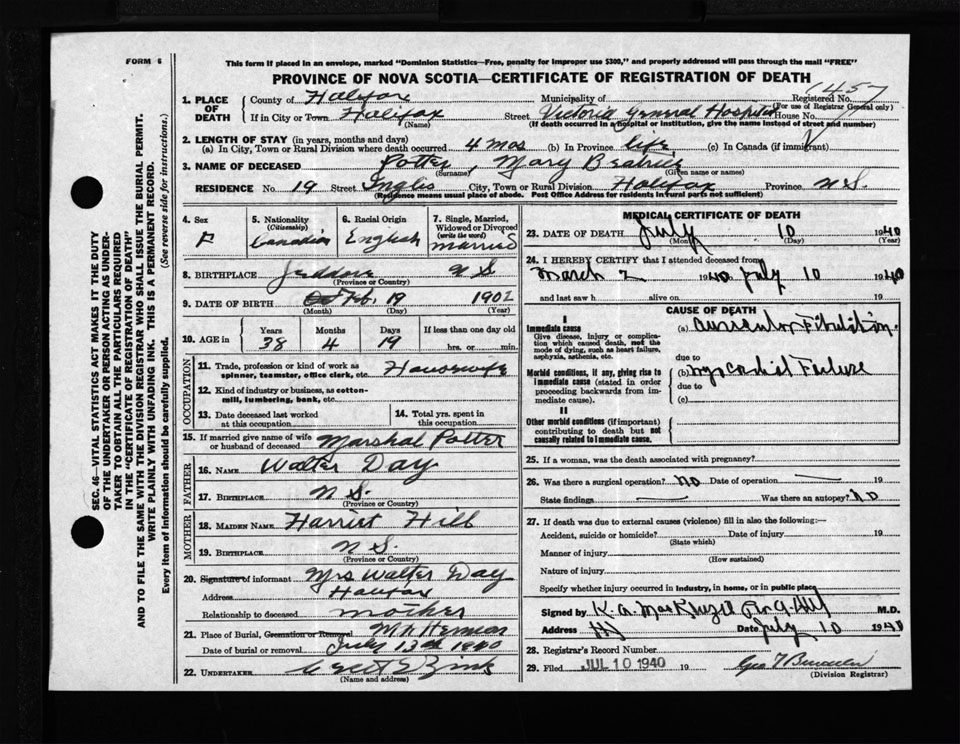 FORM 6
This form if placed in an envelope, marked "Dominion Statistics—Free, penalty for improper use $300," and properly addressed will pass through the mail "FREE"
PROVINCE OF NOVA SCOTIA—CERTIFICATE OF REGISTRATION OF DEATH
1. PLACE OF DEATH
County of Halifax Municipality of Registered No. 1457
(For use of Registrar General only)
If in City or Town Halifax Street Victoria General Hospital House No.
(Name) (If death occurred in a hospital or institution, give the name instead of street and number)
2. LENGTH OF STAY (in years, months and days)
(a) In City, Town or Rural Division where death occurred 4 mos (b) In Province life (c) In Canada (if immigrant)
3. NAME OF DECEASED Potter, Mary Beatrice
(Surname) (Given name or names)
RESIDENCE No. 19 Street Inglis City, Town or Rural Division Halifax Province N.S.
(Residence means usual place of abode. Post Office Address for residents in rural parts not sufficient)
4. Sex F
5. Nationality (Citizenship) Canadian
6. Racial Origin English
7. Single, Married, Widowed or Divorced (write the word) married
8. BIRTHPLACE Jeddore N S
(Province or Country)
9. DATE OF BIRTH Feb. 19 1902
(Month) (Day) (Year)
10. AGE in Years 38 Months 4 Days 19 If less than one day old hrs. or min.
OCCUPATION
11. Trade, profession or kind of work as spinner, teamster, office clerk, etc. Housewife
12. Kind of industry or business, as cotton-mill, lumbering, bank, etc.
13. Date deceased last worked at this occupation
14. Total yrs. spent in this occupation
15. If married give name of wife or husband of deceased Marshal Potter
FATHER
16. NAME Walter Day
17. BIRTHPLACE N S.
(Province or Country)
MOTHER
18. MAIDEN NAME Harriet Hill
19. BIRTHPLACE N S.
(Province or Country)
20. Signature of informant Mrs Walter Day
Address Halifax
Relationship to deceased mother
21. Place of Burial, Cremation or Removal Mt Hermon
Date of burial or removal July 13th 1940
22. UNDERTAKER
(Name and address)
MEDICAL CERTIFICATE OF DEATH
23. DATE OF DEATH July 10 1940
(Month) (Day) (Year)
24. I HEREBY CERTIFY that I attended deceased from
March 2 1940 July 10 1940
and last saw h alive on 19
CAUSE OF DEATH
I
Immediate cause
Give disease, injury or complication which caused death, not the mode of dying, such as heart failure, asphyxia, asthenia, etc.
(a) auricular Fibrillation
due to
Morbid conditions, if any, giving rise to immediate cause (stated in order proceeding backwards from immediate cause).
(b) myocardial Failure
due to
(c)
II
Other morbid conditions (if important) contributing to death but not causally related to immediate cause.
25. If a woman, was the death associated with pregnancy?
26. Was there a surgical operation? no Date of operation
State findings Was there an autopsy? no
27. If death was due to external causes (violence) fill in also the following:—
Accident, suicide or homicide? Date of injury 19
(State which)
Manner of injury
(How sustained)
Nature of injury
Specify whether injury occurred in industry, in home, or in public place
Signed by K. A. MacKenzie M.D.
Address Date July 10 1940
28. Registrar's Record Number
29. Filed JUL 10 1940 19
(Division Registrar)
SEC. 46—VITAL STATISTICS ACT MAKES IT THE DUTY
OF THE UNDERTAKER OR PERSON ACTING AS UNDER-
TAKER TO OBTAIN ALL THE PARTICULARS REQUIRED
IN THE "CERTIFICATE OF REGISTRATION OF DEATH"
AND TO FILE THE SAME WITH THE DIVISION REGISTRAR WHO SHALL ISSUE THE BURIAL PERMIT.
WRITE PLAINLY WITH UNFADING INK. THIS IS A PERMANENT RECORD.
Every item of information should be carefully supplied. (See reverse side for instructions.)